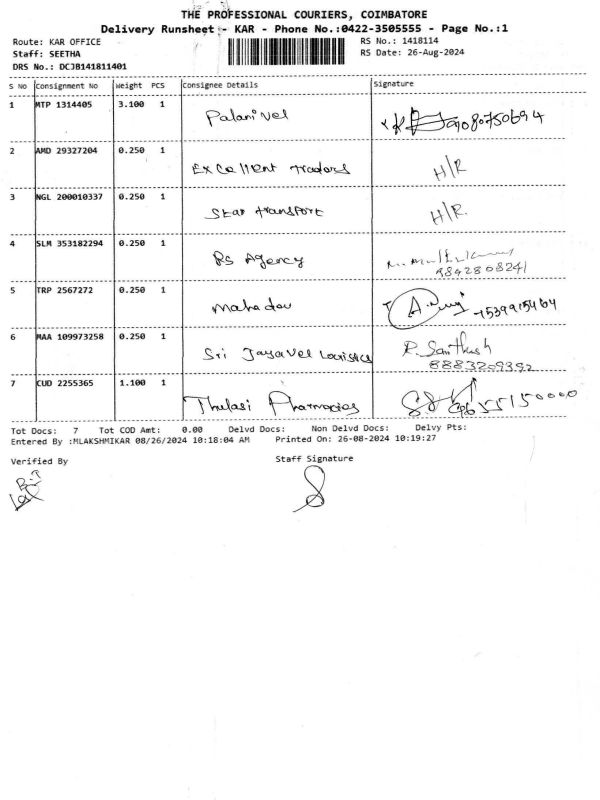 THE PROFESSIONAL COURIERS, COIMBATORE
Delivery Runsheet - KAR - Phone No.:0422-3505555 - Page No.:1
Route: KAR OFFICE RS No.: 1418114
Staff: SEETHA RS Date: 26-Aug-2024
DRS No.: DCJB141811401
S No Consignment No Weight PCS Consignee Details Signature
1 MTP 1314405 3.100 1 Palanivel 9080750694
2 AMD 29327204 0.250 1 Excellent Traders H/R
3 NGL 200010337 0.250 1 Star Transport H/R
4 SLM 353182294 0.250 1 RS Agency
9842808241
5 TRP 2567272 0.250 1 Mahadev
6 MAA 109973258 0.250 1 Sri Jayavel Logistics R. Santhosh
8883209392
7 CUD 2255365 1.100 1 Thulasi Pharmacies
Tot Docs: 7 Tot COD Amt: 0.00 Delvd Docs: Non Delvd Docs: Delvy Pts:
Entered By :MLAKSHMIKAR 08/26/2024 10:18:04 AM Printed On: 26-08-2024 10:19:27
Verified By Staff Signature